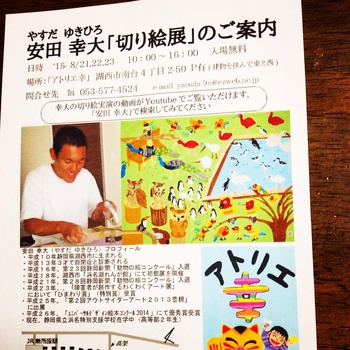 やすだ ゆきひろ
安田 幸大「切り絵展」のご案内
日時 '15- 8/21,22,23 10：00～16：00 入場無料
場所:「アトリエ幸」湖西市南台４丁目2-50 P有(建物を挟んで東と西)
問合せ先 ℡ 053-577-4524
幸大の切り絵実演の動画がYoutubeでご覧いただけます。
「安田 幸大」で検索してみてください
安田 幸大（やすだ ゆきひろ）プロフィール
・平成10年静岡県湖西市に生まれる
・平成13年3才で自閉症と診断される
・平成16年、第23回静岡新聞「動物の絵コンクール」入選
・平成18年、湖西市「浜名湖れんが館」にて初個展を開催
・平成21年、第28回静岡新聞「動物の絵コンクール」入選
において「ひまわり賞」（特別賞）受賞
・平成25年、「第2回アウトサイダーアート2013豊橋」
に出展
平成26年、「ユニバーサルデザイン絵本コンクール2014」にて優秀賞受賞
・現在、静岡県立浜名特別支援学校在学中（高等部2年生）
アトリエ
幸
JR新所原駅
高架